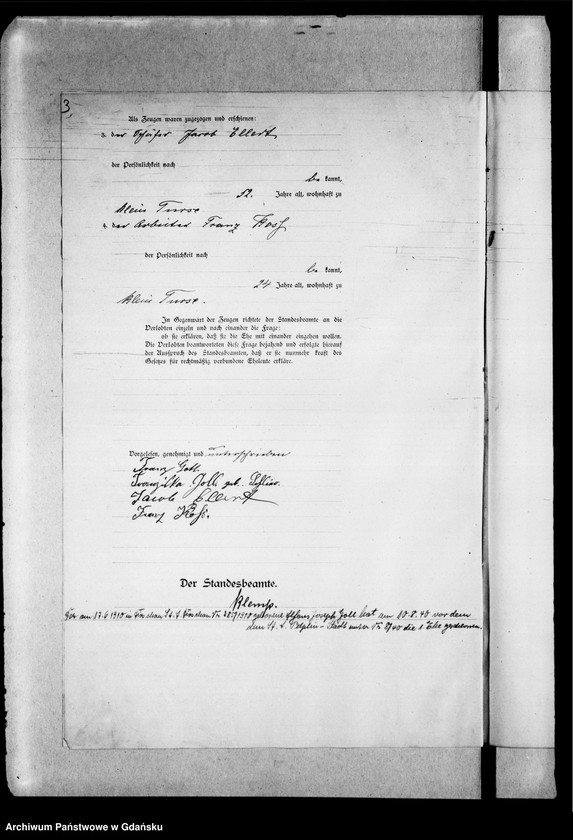 3
Als Zeugen waren zugezogen und erschienen:
3. der Schäfer Jacob Ellert
der Persönlichkeit nach
be kannt,
52 Jahre alt, wohnhaft zu
Klein Turse
4. der Arbeiter Franz
der Persönlichkeit nach
be kannt,
24 Jahre alt, wohnhaft zu
Klein Turse.
In Gegenwart der Zeugen richtete der Standesbeamte an die
Verlobten einzeln und nach einander die Frage:
ob sie erklären, daß sie die Ehe mit einander eingehen wollen.
Die Verlobten beantworteten diese Frage bejahend und erfolgte hierauf
der Ausspruch des Standesbeamten, daß er sie nunmehr kraft des
Gesetzes für rechtmäßig verbundene Eheleute erkläre.
Vorgelesen, genehmigt und unterschrieben
Franz Goll.
Franziska Goll geb.
Jacob Ellert
Franz
Der Standesbeamte.
Klemp.
Der am 17.6.1910 in geborene Alfons Joseph Goll hat am 10.8.40 vor dem
dem St. A. Pelplin-Stadt unter Nr. 8/40 die 1. Ehe geschlossen.
Archiwum Państwowe w Gdańsku